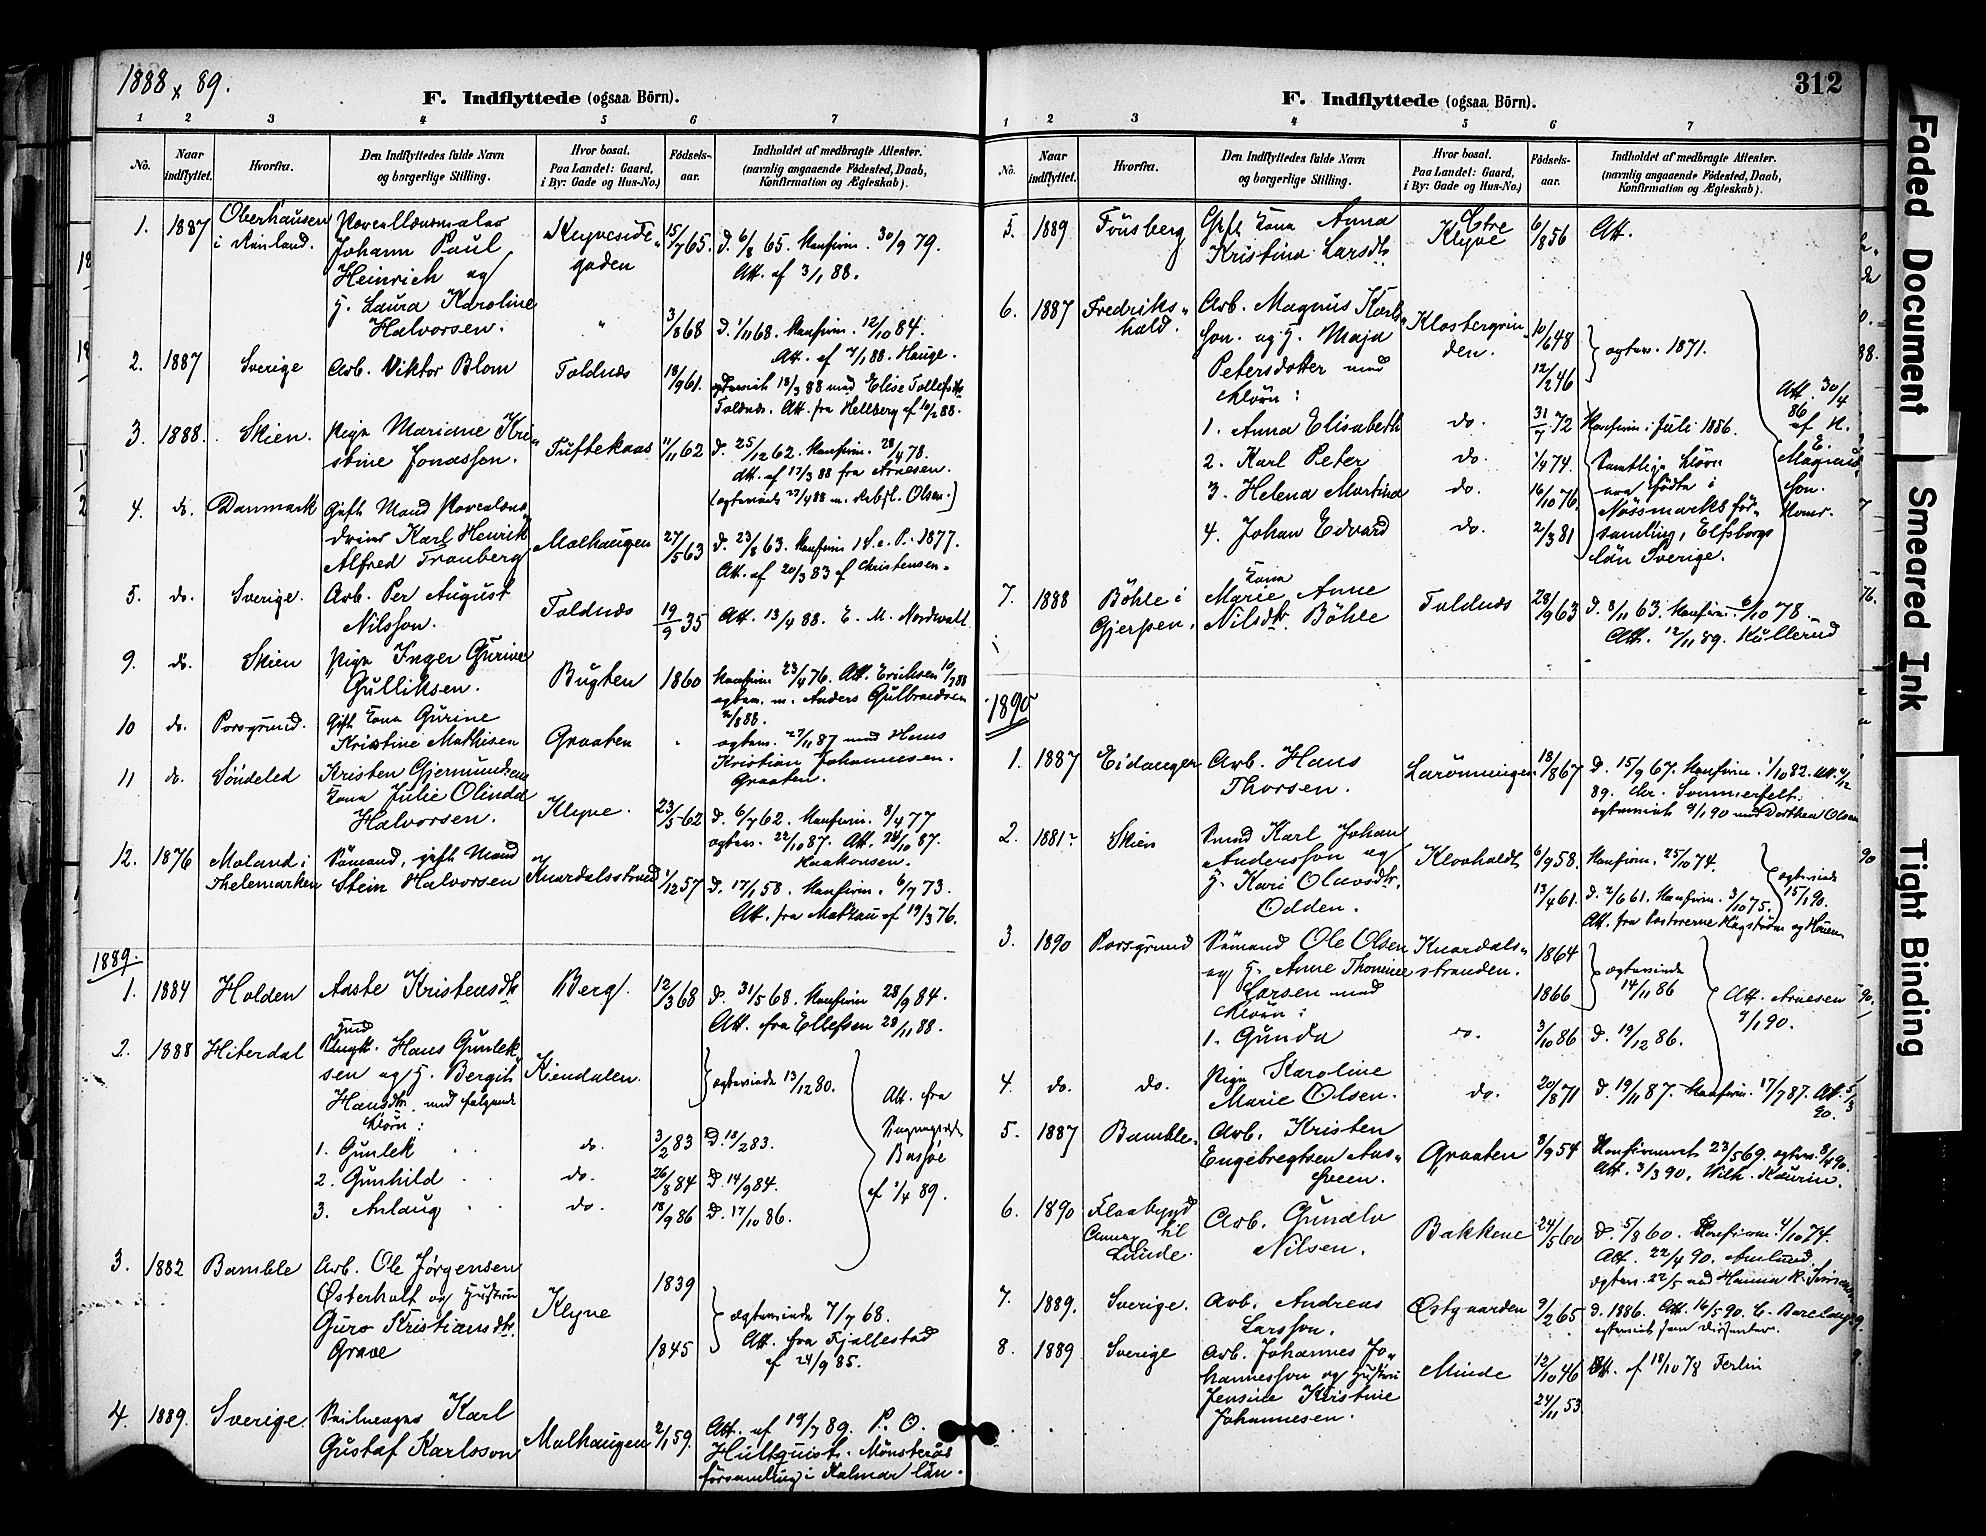 1888 x 89.
F. Indflyttede (ogsaa Börn).
1 2 3 4 5 6 7
No.
Naar indflyttet.
Hvorfra.
Den Indflyttedes fulde Navn og borgerlige Stilling.
Hvor bosat. Paa Landet: Gaard, i By: Gade og Hus-No.)
Födsels-aar.
Indholdet af medbragte Attester. (navnlig angaaende Födested, Daab, Konfirmation og Ægteskab).
1. 1887 Oberhausen i Rinland.
Porcellænsmaler
Johann Paul
Heinrich og
H. Laura Karoline
Halvorsen.
gaden
15/7 65. D. 6/8 65. Konfirm. 30/9 79.
Att. af 3/1 88.
3/8 68 D. 1/11 68. Konfirm. 12/10 84.
Hauge.
2. 1887 Sverige Arb. Viktor Blom Toldnæs 18/9 61.
18/3 88 med Elise
Toldnæs. Att. fra Hellberg af 10/2 88.
3. 1888. Skien. Pige Mariane Kri-
stine Jonassen. Tuftekaas 11/11 62 D. 25/12 62. Konfirm. 28/4 78.
Att. af 17/3 88 fra Arnesen.
Olsen.)
4. do. Danmark Gift Mand
Karl Henrik
Alfred Tranberg Molhaugen 27/5 63 D. 23/8 63. Konfirm 1877.
Att. af 20/3 83 af Christensen.
5. do. Sverige. Arb. Per August
Nilsson. Toldnæs 19/9 35 Att. 13/4 88. E. M. Nordwall
9. do. Skien Pige Inger Gurine
Gulliksen. Bugten 1860 Konfirm 23/4 76. Att. Eriksen
m. Anders Gulbrandsen
10 do. Porsgrund. Gift Kona Gurine
Kristine Mathisen Graaten 27/11 87 med Hans
Kristian Johannesen.
Graaten.
11 do. Söndeled Kristen Gjermundsens
Kona Julie Olinda
Halvorsen. Klyve. 23/5 62 D. 6/7 62. Konfirm. 8/4 77
22/10 87. Att. 24/10 87.
Haakonsen.
12. 1876 Moland i Thelemarken Sömand, gift Mand
Stein Halvorsen Knardalsstrand 1/12 57 D. 17/1 58. Konfirm. 6/7 73.
Att. fra af 19/3 76.
1889.
1. 1884 Holden Aaste Kristensdtr Berg. 12/3 68 D. 31/5 68. Konfirm 28/9 84.
Att. fra Ellefsen 28/11 88.
2. 1888 Hiterdal Hans Gunlek-
sen og H. Bergit
Hansdtr. med følgende
Börn:
Kiendalen. 13/12 80.
Att. fra
af 1/4 89.
1. Gunlek do. 3/2 83 D. 18/2 83.
2. Gunhild do. 26/8 84 D. 14/9 84.
3. Anlaug do. 18/9 86 D. 17/10 86.
3. 1882 Bamble Arb. Ole Jørgensen
Østerholt og Hustru
Guro Kristiansdtr.
Grave
Klyve 1839
1845
ægteviede 7/7 68.
Att. fra Fjellestad
af 24/9 85.
4. 1889. Sverige. Karl
Gustaf Karlsson Molhaugen 2/1 59. Att. af 19/7 89. P. O.
Hultquist. Mönsterås
församling i Kalmar län.
312
F. Indflyttede (ogsaa Börn).
1 2 3 4 5 6 7
No.
Naar indflyttet.
Hvorfra.
Den Indflyttedes fulde Navn og borgerlige Stilling.
Hvor bosat. Paa Landet: Gaard, i By: Gade og Hus-No.)
Födsels-aar.
Indholdet af medbragte Attester. (navnlig angaaende Födested, Daab, Konfirmation og Ægteskab).
5. 1889 Tönsberg Gift Kona Anna
Kristina Larsdtr Klyve 6/8 56 Att.
6. 1887 Fredriks-hald. Arb. Magnus Karls-
son. og H. Maja
Petersdotter med
Börn:
10/6 48
12/2 46
1871.
Att. 30/4 86
af H.
E.
Magnus-
son.
1. Anna Elisabeth do. 31/7 72 Konfirm. i Juli 1886.
2. Karl Peter do. 1/4 74. Samtlige Börn
3. Helena Martina do. 16/10 76. ere födte i
4. Johan Edvard do. 2/3 81 Nössmarks för-
samling, Elfsborgs
län Sverige.
7. 1888 Böhle i Gjerpen. Kona
Marie Anne
Nilsdtr. Böhle Toldnæs 28/9 63 D. 8/11 63. Konfirm. 6/10 78.
Att. 12/11 89. Kullerud
1890
1. 1887 Eidanger Arb. Hans
Thorsen. Larönningen 18/8 67 D. 15/9 67. Konfirm. 1/10 82.
89. Chr. Sommerfelt.
9/1 90 med Dorthea Olsen
2. 1881 Skien Smed Karl Johan
Andersson og
H. Kari Olavsdtr.
Odden.
Kloaholdt 6/9 58. Konfirm. 25/10 74.
13/4 61. D. 2/6 61. Konfirm. 3/10 75.
ægteviede
15/1 90.
Att. fra Pastorerne Hagström og
3. 1890 Porsgrund Sömand Ole Olsen
og H. Anne Thomine
Larsen med
Börn:
Knardals-stranden. 1864
1866
ægteviede
14/11 86
Att. Arnesen
9/1 90.
1. Gunda do. 3/10 86 D. 19/12 86.
4. do. do. Pige Karoline
Marie Olsen. do. 20/8 71 D. 19/11 87. Konfirm. 17/7 87. Att. 5/3
90.
5. 1887 Bamble. Arb. Kristen
Engebregtsen Aas-
Graaten 3/9 54 Konfirmeret 23/5 69.
Att. 3/3 90. Wilh. Kaurin.
6. 1890 Flaabygd
Annex til
Lunde. Arb. Gundlv
Nilsen. Bakkene 24/5 60 D. 5/8 60. Konfirm. 4/10 74.
Att. 22/4 90. Amlund.
22/5 med Hanna K.
7. 1889. Sverige. Arb. Andreas
Larsson. Østgaarden 9/2 65 D. 1886. Att. 16/5 90. C.
som dissenter.
8. 1889 Sverige Arb. Johannes Jo-
hannesson og Hustru
Jensine Kristine
Johannesen. Minde 12/10 46
24/11 53
Att. af 18/10 78 Ferlin
Faded Document
Smeared Ink
Tight Binding